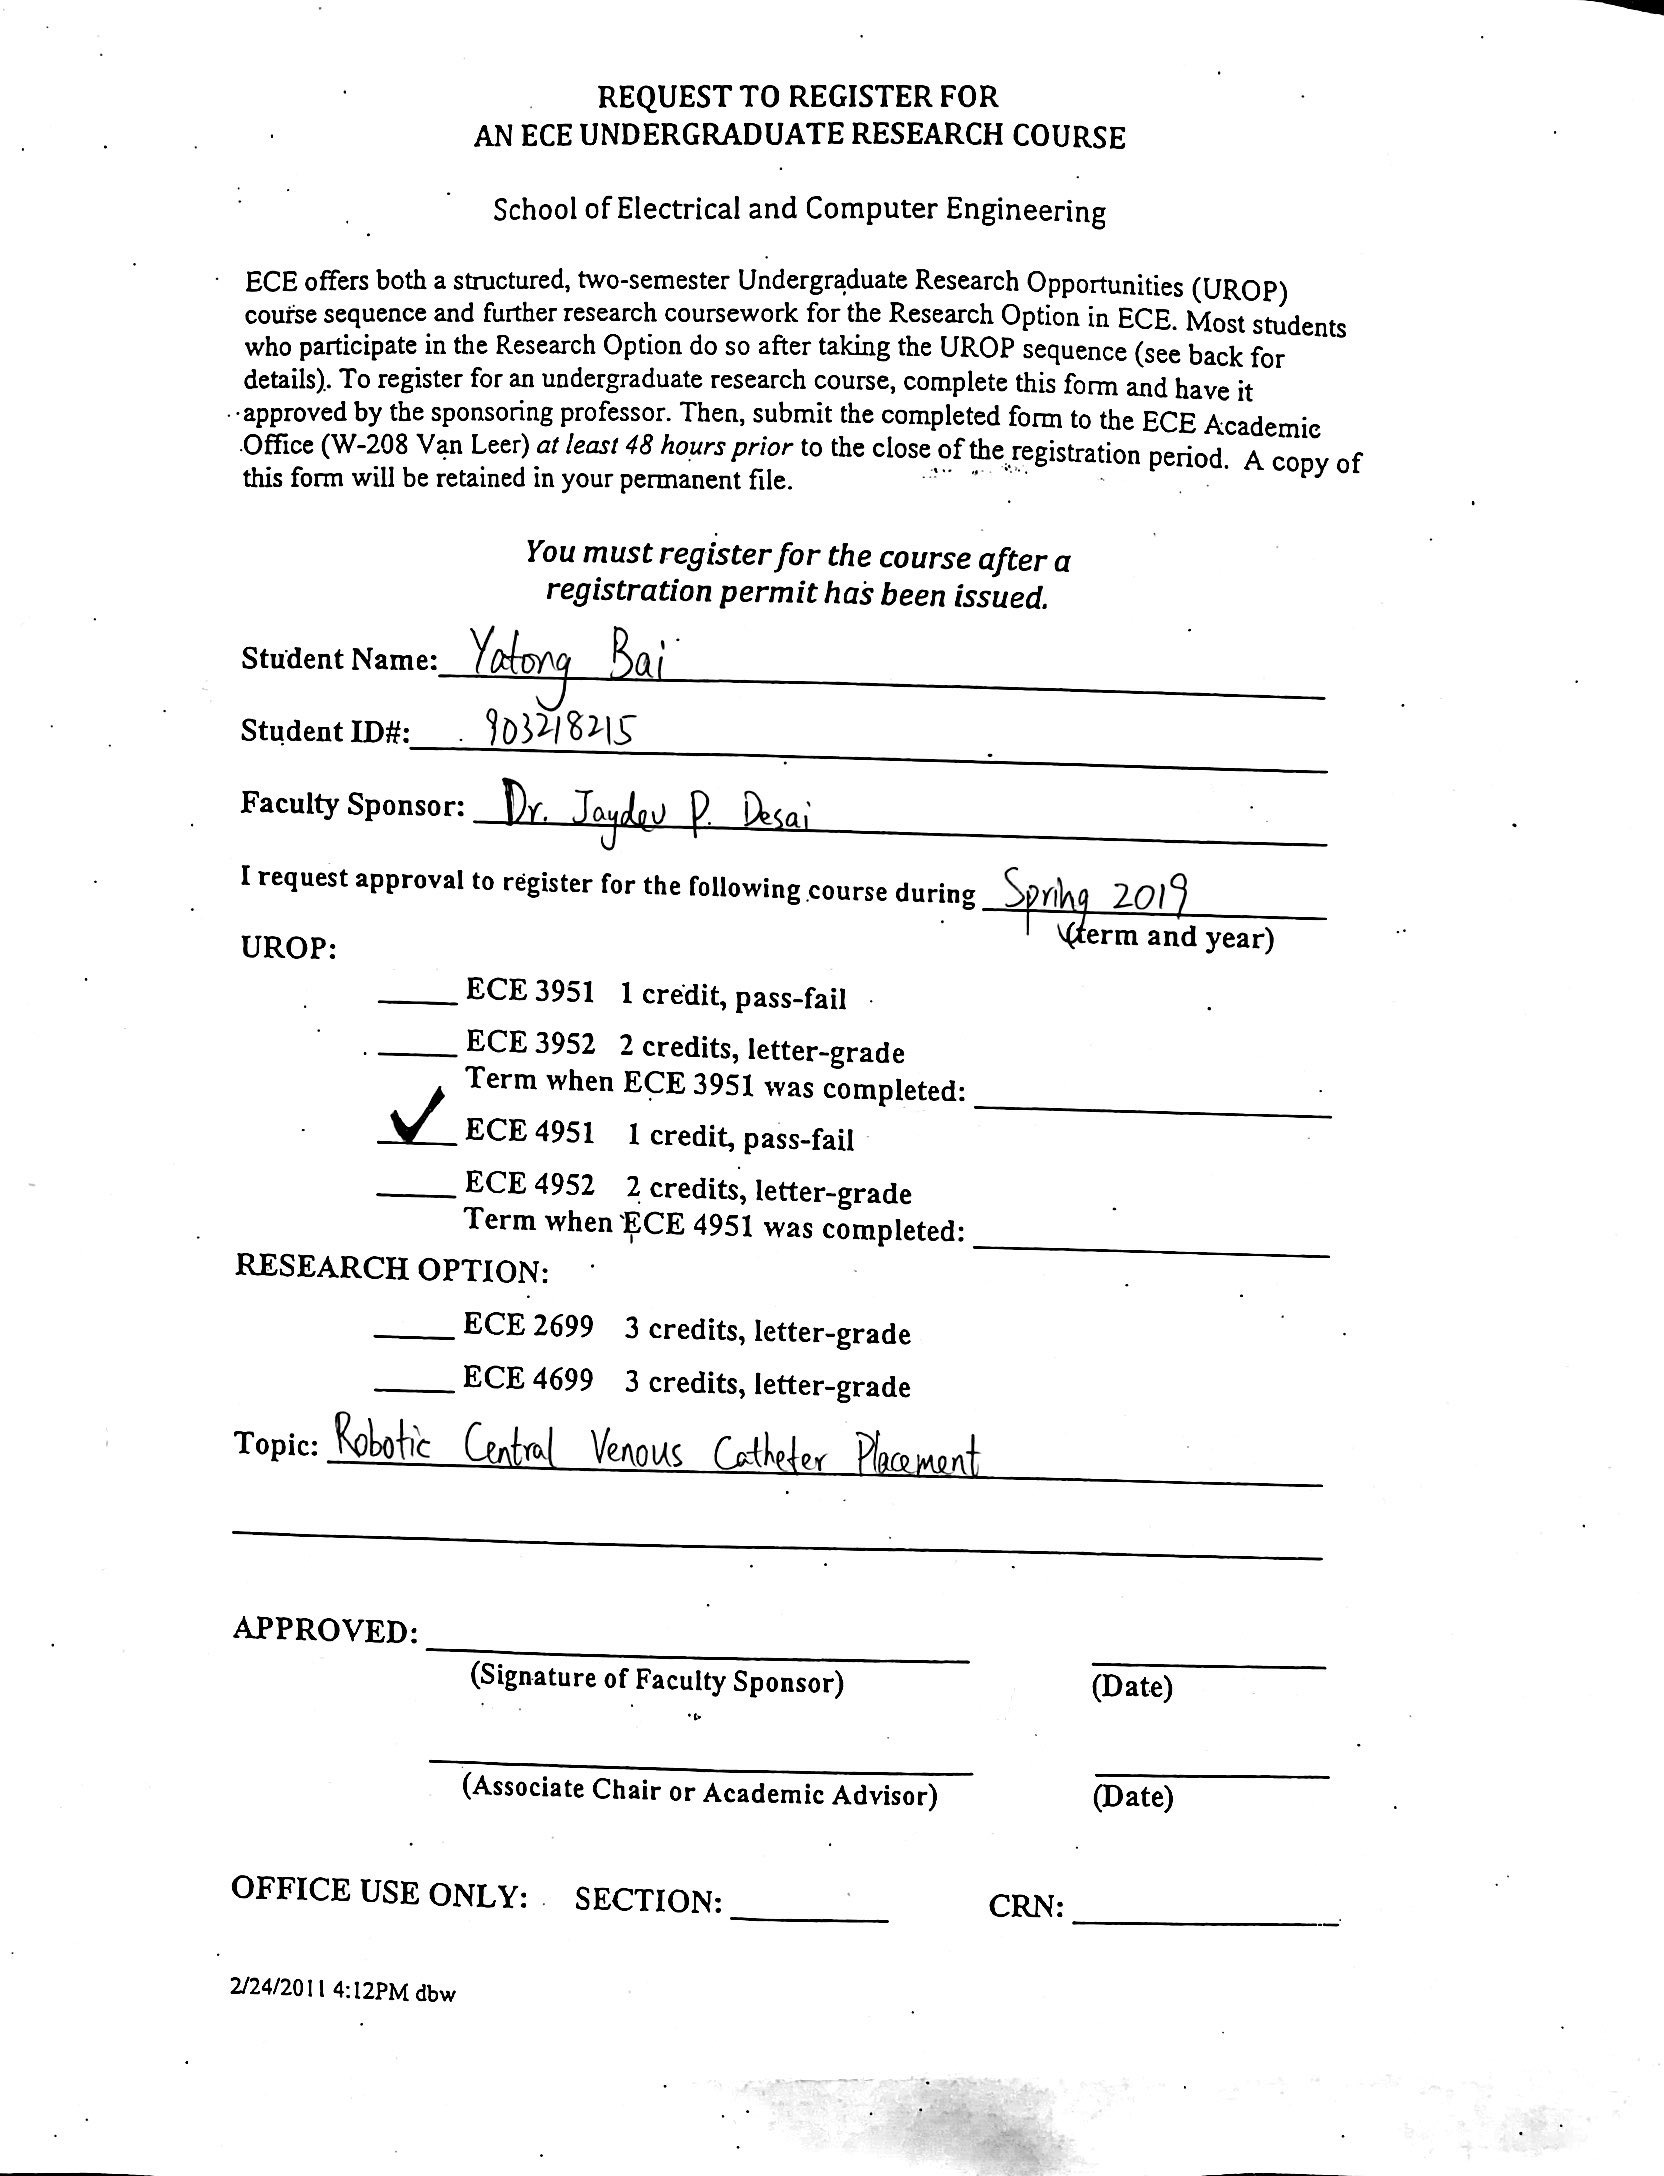 REQUEST TO REGISTER FOR
AN ECE UNDERGRADUATE RESEARCH COURSE
School of Electrical and Computer Engineering
ECE offers both a structured, two-semester Undergraduate Research Opportunities (UROP)
course sequence and further research coursework for the Research Option in ECE. Most students
who participate in the Research Option do so after taking the UROP sequence (see back for
details). To register for an undergraduate research course, complete this form and have it
approved by the sponsoring professor. Then, submit the completed form to the ECE Academic
Office (W-208 Van Leer) at least 48 hours prior to the close of the registration period. A copy of
this form will be retained in your permanent file.
You must register for the course after a
registration permit has been issued.
Student Name: Yatong Bai
Student ID#: 903218215
Faculty Sponsor: Dr. Jaydev P. Desai
I request approval to register for the following course during Spring 2019
(term and year)
UROP:
ECE 3951 1 credit, pass-fail
ECE 3952 2 credits, letter-grade
Term when ECE 3951 was completed:
✓ ECE 4951 1 credit, pass-fail
ECE 4952 2 credits, letter-grade
Term when ECE 4951 was completed:
RESEARCH OPTION:
ECE 2699 3 credits, letter-grade
ECE 4699 3 credits, letter-grade
Topic: Robotic Central Venous Catheter Placement
APPROVED:
(Signature of Faculty Sponsor) (Date)
(Associate Chair or Academic Advisor) (Date)
OFFICE USE ONLY: SECTION: CRN:
2/24/2011 4:12PM dbw